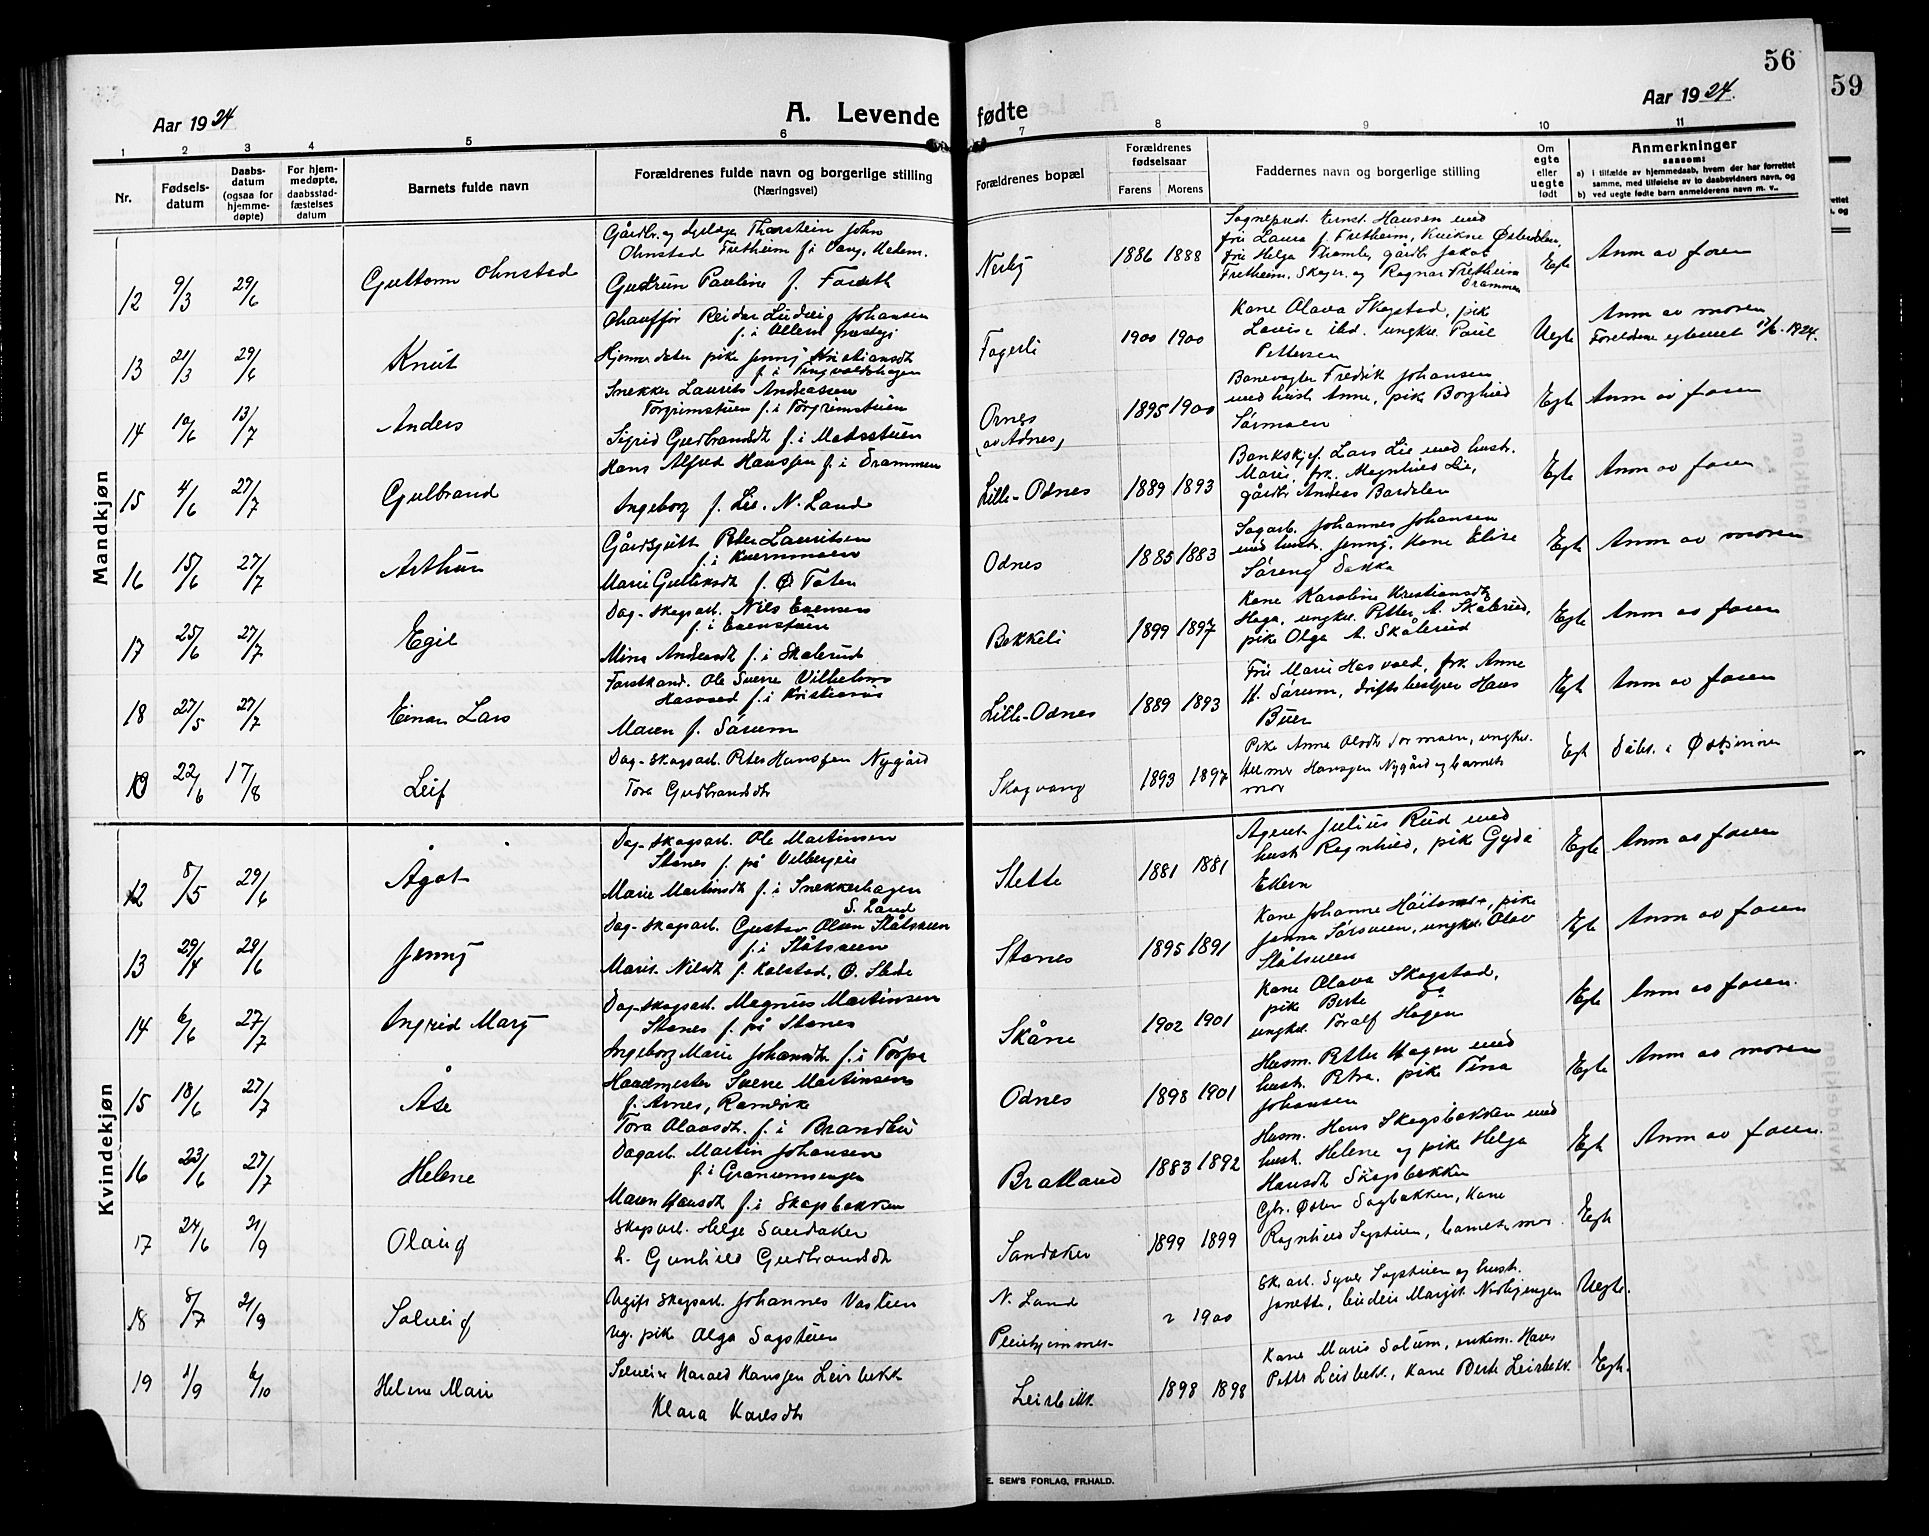 56
59
Aar 1924
A. Levende fødte
Aar 1924.
1 2 3 4 5 6 7 8 9 10 11
Nr.
Fødsels-
datum
Daabs-
datum
(ogsaa for
hjemme-
døpte)
For hjem-
medøpte,
daabsstad-
fæstelses
datum
Barnets fulde navn
Forældrenes fulde navn og borgerlige stilling
(Næringsvei)
Forældrenes bopæl
Forældrenes
fødselsaar
Farens Morens
Faddernes navn og borgerlige stilling
Om
egte
eller
uegte
født
Anmerkninger
saasom:
a) i tilfælde av hjemmedaab, hvem der har forrettet
samme, med tilføielse av to daabsvidners navn, og
b) ved uegte fødte barn anmelderens navn m. v..
Mandkjøn
12 9/3 29/6 Guttorm Ohnstad
Thorstein John
Ohnstad Fretheim f. i Vang, Hedem.
Gudrun Pauline f. Forseth
Nerby 1886 1888
Sognepræst. Ernst Hansen med
fru Laura f. Fretheim, Kvikne Østerdalen,
fru Helga Thomle, gårdb. Jakob
Fretheim, Skager. og Ragnar Fretheim
Drammen
Egte Anm av faren
13 21/3 29/6 Knut
Chauffør Reidar Ludvig Johansen
Hjemmedater pike Jenny Kristiansdt
f. i Tingvoldshagen
Fagerli 1900 1900
Kone Olava Skogstad, pik
Lovise ibd. ungkr. Paul
Pettersen
Uegte Anm av moren
Foreldrene egteviet 17/6-1924.
14 10/6 13/7 Anders
Snekker Laurits Andreassen
Torgrimstuen f. i Torgrimstuen
Sigrid Gudbrandsdt f. i Madsstuen
Ornes
(av Odnes) 1895 1900
Banevogter Fredrik Johansen
med hust. Anne, pike Borghild
Sørmoen
Egte Anm av faren
15 4/6 27/7 Gulbrand
Hans Alfred Hanssen f. i Drammen
Ingeborg f. Lie. N. Land
Lille-Odnes 1889 1893
Bankskjef. Lars Lie med hustr.
Marie, frk. Magnhild Lie,
gårdbr Andreas Bardalen
Egte Anm av faren
16 15/6 27/7 Arthur
Gårdsgutt Peter Lauritsen
f. i Kvernmoen
Marie Gulliksdt f. Ø Toten
Odnes 1885 1883
Sagarb. Johannes Johansen
med hustr. Jenny, Kone Elise
Søreng Dokka
Egte Anm av moren
17 25/6 27/7 Egil
Dag-Skogsarb. Nils Evensen
f. i Evenstuen
Mina Andersdt f. i Skolerud
Bekkeli 1899 1897
Kone Karoline Kristiansdt
Haga, ungkr. Petter A. Skålerud,
pike Olga A. Skålerud
Egte Anm av faren
18 27/5 27/7 Einar Lars
Forstkand. Ole Sverre Vilhelm
Hasvold f. i Kristiania
Maren f. Sørum
Lille-Odnes 1889 1893
Fru Marie Hasvold, frk. Anne
H. Sørum, driftsbestyrer Hans
Buer
Egte Anm av faren
19 22/6 17/8 Leif
Dag-Skogsarb. Peter Hanssen Nygård
Tora Gudbrandsdt
Skogvang 1893 1897
Pike Anna Olsdt Sørmoen, ungkr.
Helmer Hanssen Nygård og barnets
mor
Egte Døbt i Østsinnen
Kvindekjøn
12 8/5 29/6 Ågot
Dag-Skogsarb. Ole Martinsen
Stenes f. på Velbergeie
Marie Martinsdt f. i Snekkerhagen
S. Land
Slette 1881 1881
Agent Julius Rud med
hust Ragnhild, pik Gyda
Ekern
Egte Anm av faren
13 29/4 29/6 Jenny
Dag-Skogsarb. Gustav Olsen Slåtsveen
f. i Slåtsveen
Marie Nilsdt f. Kolstad, Ø. Slidre
Stenes 1895 1891
Kone Johanne Høitomt, pike
Janna Sørsveen, ungkr. Olav
Slåtsveen
Egte Anm av faren
14 6/6 27/7 Ingrid Mary
Dag-Skogsarb. Magnus Martinsen
Stenes f. på Stenes
Ingeborg Marie Johansdt f. i Torpa
Skåne 1902 1901
Kone Olava Skogstad,
pik Berte do
ungkr. Toralf Hagen
Egte Anm av faren.
15 18/6 27/7 Åse
Sverre Martinsen
f. Arnes, Romerike
Tora Olavsdt. f. i Brandbu
Odnes 1898 1901
Husm. Petter Hagen med
hust. Petra. pike Tina
Johansen
Egte Anm av moren
16 23/6 27/7 Helene
Dagarb. Martin Johansen
f. i Granumsengen
Maren Hansdt f. i Skogsbakken
Bratland 1883 1892
Husm. Hans Skogsbakken med
hust. Helene og pike Helga
Hansdt Skogsbakken
Egte Anm av faren.
17 24/6 21/9 Olaug
Skogsarb. Helge Sandaker
h. Gunhild Gudbrandsdt
Sandaker 1899 1899
Gbr. Østen Sagbakken, Kone
Ragnhild Sagstuen, barnets mor.
Egte
18 8/7 21/9 Solveig
Ugift Skogsarb. Johannes Vastuen
Ug. pike Olga Sagstuen
N. Land
Pleiehjemmet 1900
Sk. arb. Syver Sagstuen og hustr.
Janette, budeie Margit Nordbyengen
Uegte.
19 1/9 6/10 Helene Marie
Harald Hanssen Leirbekk
Klara Karlsdt
Leirbekk. 1898 1898
Kone Marie Solum, enkem. Hans
Petter Leirbekk, Kone Berte Leirbekk.
Egte.
E. SEM'S FORLAG, FR.HALD.